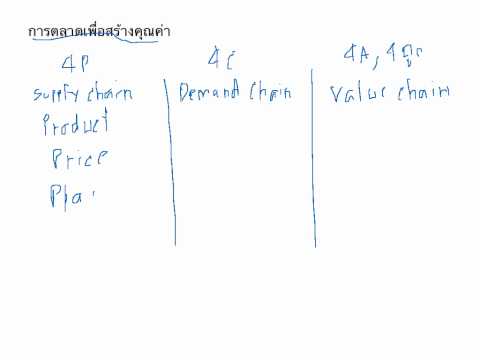 การตลาดเพื่อสร้างคุณค่า
4P 4C 4A, 4ถูก
Supply chain Demand Chain Value chain
Product
Price
Pla